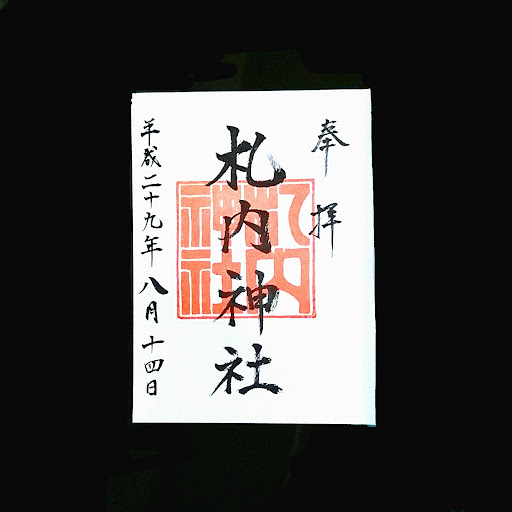 奉拝
札内神社
平成二十九年八月十四日
札内神社